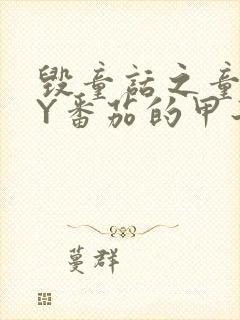 毁童话之童
Y番茄的甲
蔓群